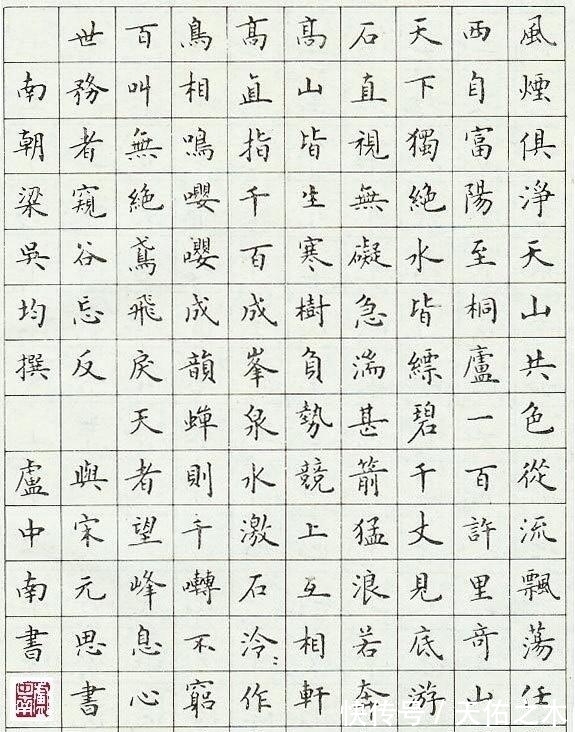 風煙俱淨天山共色從流飄蕩任
西自富陽至桐廬一百許里奇山
天下獨絕水皆縹碧千丈見底游
石直視無礙急湍甚箭猛浪若奔
高山皆生寒樹負勢競上互相軒
高直指千百成峯泉水激石泠〻作
鳥相鳴嚶嚶成韻蟬則千囀不窮
百叫無絕鳶飛戾天者望峰息心
世務者窺谷忘反 與宋元思書
南朝梁吳均撰 盧中南書
快传号